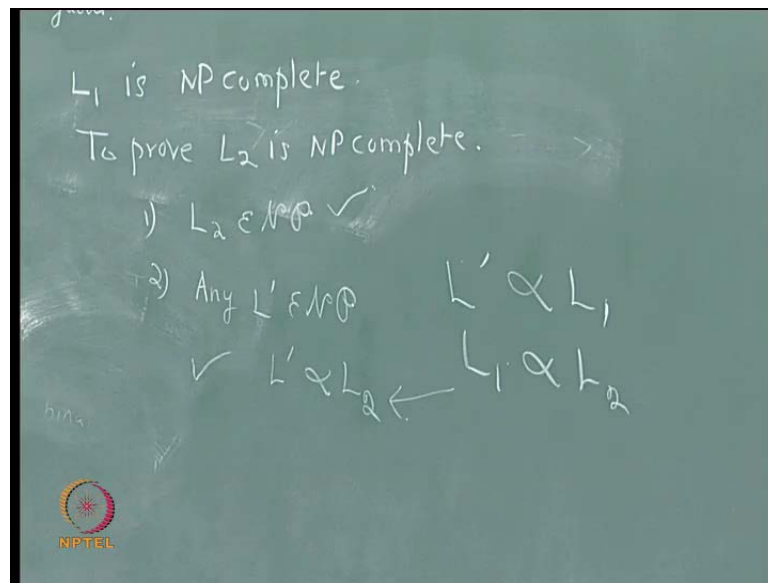 L₁ is NP complete.
To prove L₂ is NP complete.
1) L₂ ε NP ✓
2) Any L' ε NP L' ∝ L₁
✓ L' ∝ L₂ ← L₁ ∝ L₂
NPTEL